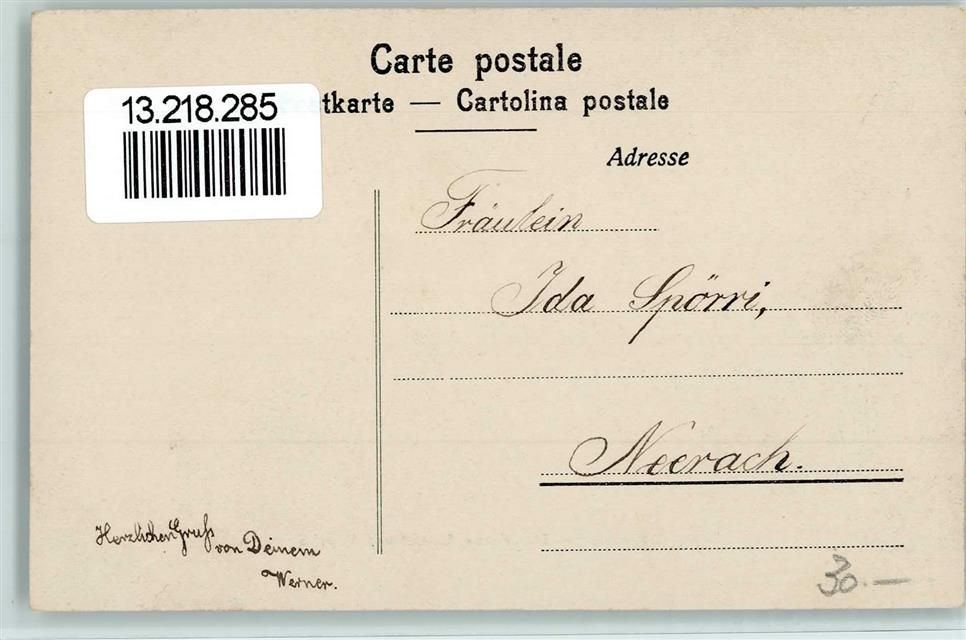 Carte postale
tkarte — Cartolina postale
13.218.285
Adresse
Fräulein
Ida Spörri,
Neerach.
Herzlichen Gruß
von Deinem
Werner.
30.—